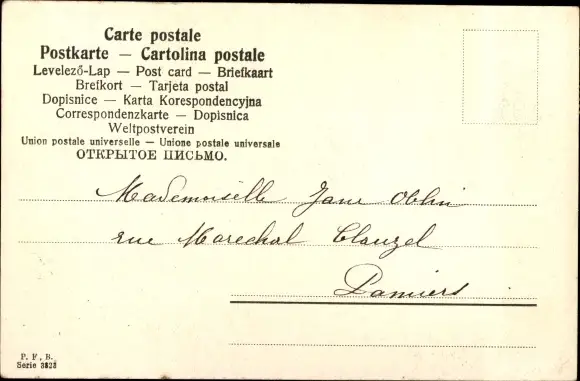 Carte postale
Postkarte — Cartolina postale
Levelező-Lap — Post card — Briefkaart
Brefkort — Tarjeta postal
Dopisnice — Karta Korespondencyjna
Correspondenzkarte — Dopisnica
Weltpostverein
Union postale universelle — Unione postale universale
ОТКРЫТОЕ ПИСЬМО.
Mademoiselle Jane
rue Marechal Clauzel
Pamiers
P. F. B.
Serie 3828